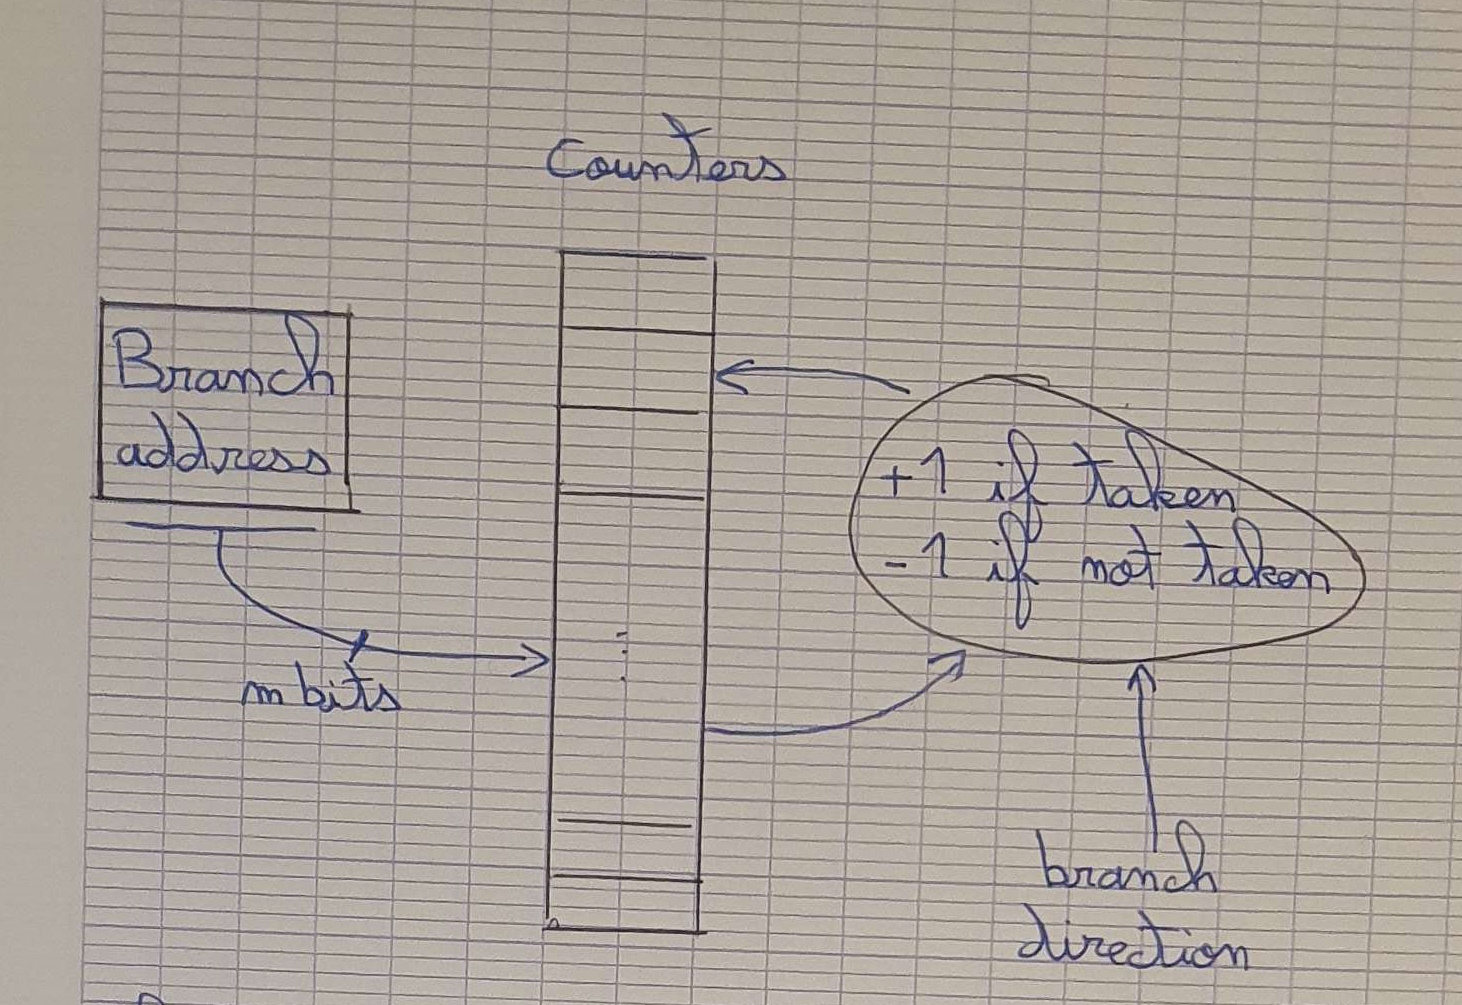 Counters
Branch
address
+1 if taken
-1 if not taken
m bits
branch
direction